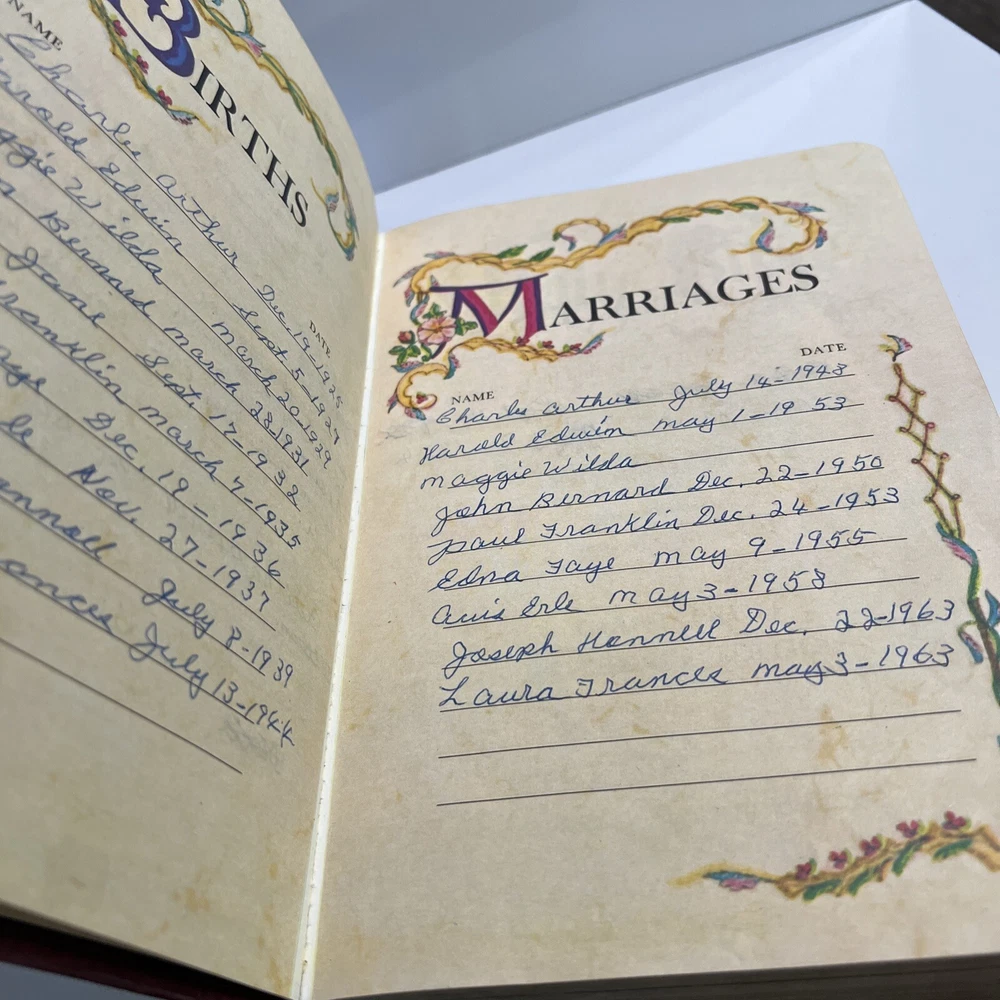 BIRTHS
NAME
DATE
Charles Arthur Dec. 19-1925
Harold Edwin Sept. 5-1927
Maggie Wilda March 20-1929
Bernard March 28 1931
Jane Sept. 17-1932
Franklin March 7-1935
Faye Dec. 19-1936
Nov. 27-1937
July 8-1939
Frances July 13-1944
MARRIAGES
NAME
DATE
Charles Arthur July 14-1948
Harold Edwin May 1-1953
Maggie Wilda
John Bernard Dec. 22-1950
Paul Franklin Dec. 24-1953
Edna Faye May 9-1955
Avis Erle May 3-1958
Joseph Hannell Dec. 22-1963
Laura Frances May 3-1963